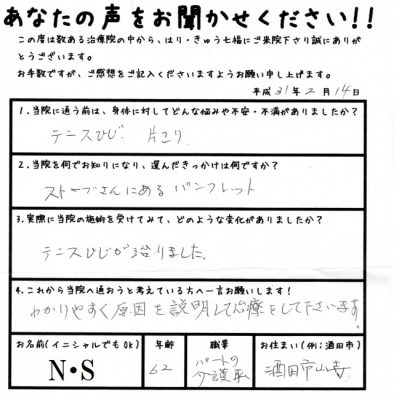 あなたの声をお聞かせください!!
この度は数ある治療院の中から、はり・きゅう七福にご来院下さり誠にありが
とうございます。
お手数ですが、ご感想をご記入くださいますようお願い申し上げます。
平成 31 年 2 月 14 日
1.当院に通う前は、身体に対してどんな悩みや不安・不満がありましたか?
テニスひじ. 片こり
2.当院を何でお知りになり、選んだきっかけは何ですか?
ストーブさんにある パンフレット
3.実際に当院の施術を受けてみて、どのような変化がありましたか?
テニスひじが治りました.
4.これから当院へ通おうと考えている方へ一言お願いします!
わかりやすく原因を説明して治療をしてださいます.
お名前(イニシャルでもOK) 年齢 職業 お住まい(例;酒田市)
N・S 62 パートの 酒田市山寺
介護職